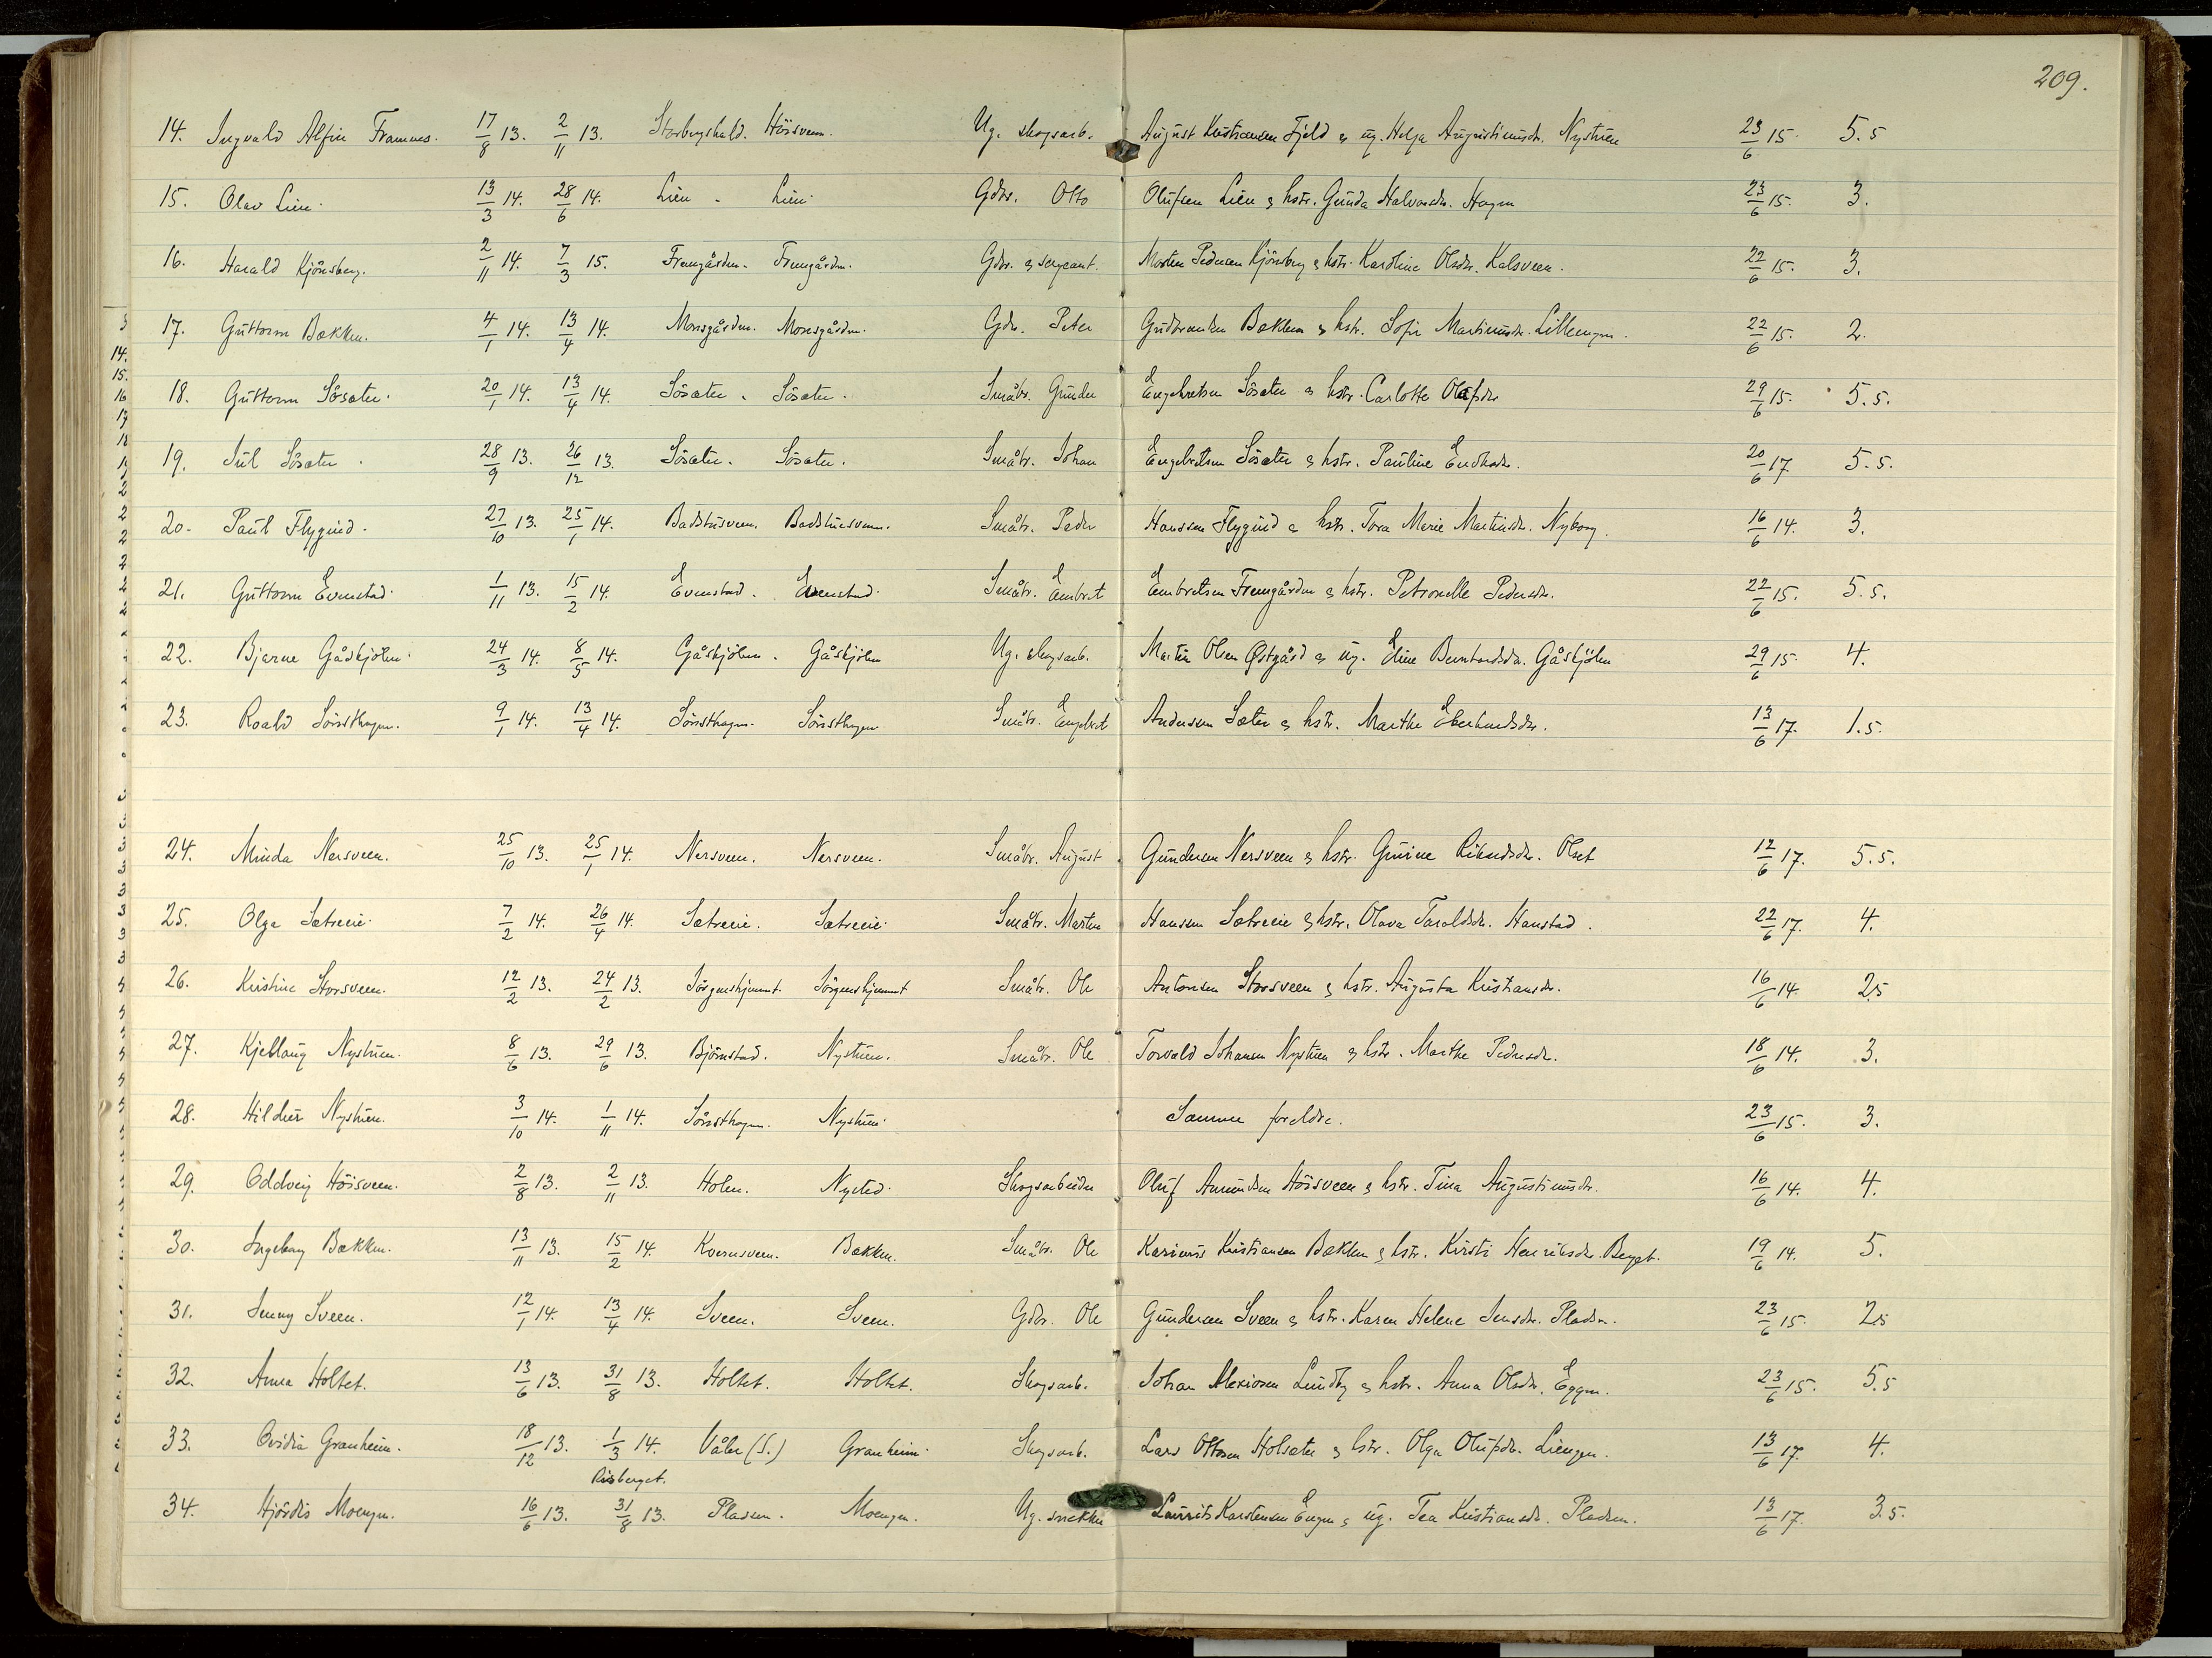 209.
14. Ingvald Alfin Framnes. 17/8 13. 2/11 13. Storbergshald. Höisveen. Ug. skogsarb. August Kristiansen Fjeld & ug. Helga Augustinusdr. Nystuen 23/6 15. 5.5
15. Olav Lien. 13/3 14. 28/6 14. Lien - Lien. Gdbr. Otto Olufsen Lien & hstr. Gunda Halvorsdr. Hagen 23/6 15. 3.
16. Harald Kjönsberg. 2/11 14. 7/3 15. Fremgården. Fremgården. Gdbr. & sergeant. Morten Pedersen Kjönsberg & hstr. Karoline Olsdr. Kalsveen. 22/6 15. 3.
17. Guttorm Bækken. 4/1 14. 13/4 14. Monsgården. Monsgården. Gdbr. Peter Gudbrandsen Bækken & hstr. Sofie Martinusdr. Lilleengen. 22/6 15. 2.
18. Guttorm Sösæter. 20/1 14. 13/4 14. Sösæter. Sösæter. Småbr. Gunder Engebretsen Sösæter & hstr. Carlotte Olafsdr 29/6 15. 5.5.
19. Jul Sösæter. 28/9 13. 26/12 13. Sösæter. Sösæter. Småbr. Johan Engebretsen Sösæter & hstr. Pauline 20/6 17 5.5.
20. Paul Flygind. 27/10 13. 25/1 14. Badstusveen. Badstuesveen. Småbr. Peder Hanssen Flygind & hstr. Tora Marie Martinsdr. Nyborg. 16/6 14. 3.
21. Guttorm Evenstad. 1/11 13. 15/2 14. Evenstad. Evenstad. Småbr. Embret Embretsen Fremgården & hstr. Petronelle Pedersdr. 22/6 15. 5.5.
22. Bjarne Gåskjölen. 24/3 14. 8/5 14. Gåskjölen. Gåskjölen Ug. skogsarb. Martin Olsen Østgård & ug. Eline Bernhardsdr. Gåskjölen 29/6 15. 4.
23. Roald Sörsthagen. 9/1 14. 13/4 14. Sörsthagen. Sörsthagen Småbr. Engebret Andersen Sæter & hstr. Marthe Eberhardsdr. 13/6 17. 1.5.
24. Minda Nersveen. 25/10 13. 25/1 14. Nersveen. Nersveen. Småbr. August Gundersen Nersveen & hstr. Gurine Olset 12/6 17. 5.5.
25. Olga Sætreeie. 7/2 14. 26/4 14. Sætreeie. Sætreeie. Småbr. Morten Hansen Sætreeie & hstr. Olava Taraldsdr. Hanstad. 22/6 17. 4.
26. Kristine Storsveen. 12/2 13. 24/2 13. Jörgenshjemmet. Jörgenshjemmet Småbr. Ole Antonsen Storsveen & hstr. Augusta Kristiansdr. 16/6 14. 2.5
27. Kjellaug Nystuen. 8/6 13. 29/6 13. Björnstad. Nystuen. Småbr. Ole Torvald Johansen Nystuen & hstr. Marthe Pedersdr. 18/6 14. 3.
28. Hildur Nystuen. 3/10 14. 1/11 14. Sörsthagen. Nystuen. Samme foreldre. 23/6 15. 3.
29. Oddveig Höisveen. 2/8 13. 2/11 13. Holen. Nysted. Skogsarbeider Oluf Amundsen Höisveen & hstr. Tina Augustinusdr. 16/6 14. 4.
30. Ingeborg Bækken. 13/11 13. 15/2 14. Kvernsveen. Bækken. Småbr. Ole Karinus Kristiansen Bækken & hstr. Kirsti Henriksdr. Berget. 19/6 14. 5.
31. Jenny Sveen. 12/1 14. 13/4 14. Sveen. Sveen. Gdbr. Ole Gundersen Sveen & hstr. Karen Helene Jensdr. Pladsen. 23/6 15. 2.5
32. Anna Holtet. 13/6 13. 31/8 13. Holtet. Holtet. Skogsarb. Johan Alexiosen Lundby & hstr. Anna Olsdr. Eggen. 23/6 15. 5.5
33. Ovidia Granheim. 18/12 13. 1/3 14. Våler (S.) Granheim. Skogsarb. Lars Ottosen Holsæter & hstr. Olga Olufsdr. Liengen. 13/6 17. 4.
Risberget.
34. Hjördis Moengen. 16/6 13. 31/8 13. Plassen. Moengen. Ug. snekker Laurits Karstensen Engen & ug. Tea Kristiansdr. Pladsen. 13/6 17. 3.5.